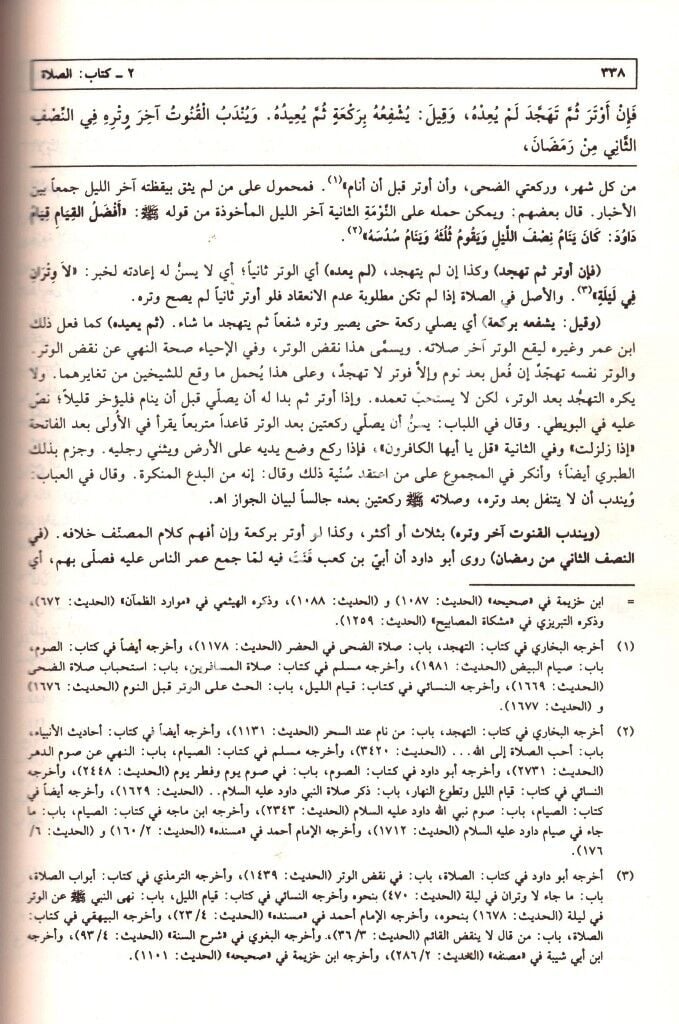 ٣٣٨ ٢ ـ كتاب: الصلاة
فَإِنْ أَوْتَرَ ثُمَّ تَهَجَّدَ لَمْ يُعِدْهُ، وَقِيلَ: يُشْفِعُهُ بِرَكْعَةٍ ثُمَّ يُعِيدُهُ. وَيُنْدَبُ الْقُنُوتُ آخِرَ وِتْرِهِ فِي النِّصْفِ
الثَّانِي مِنْ رَمَضَانَ،
من كل شهر، وركعتي الضحى، وأن أوتر قبل أن أنام»(١). فمحمول على من لم يثق بيقظته آخر الليل جمعاً بين
الأخبار. قال بعضهم: ويمكن حمله على النَّوْمَةِ الثانية آخر الليل المأخوذة من قوله ﷺ: «أَفْضَلُ القِيَامِ قِيَامُ
دَاوُدَ: كَانَ يَنَامُ نِصْفَ اللَّيْلِ وَيَقُومُ ثُلُثَهُ وَيَنَامُ سُدُسَهُ»(٢).
(فإن أوتر ثم تهجد) وكذا إن لم يتهجد، (لم يعده) أي الوتر ثانياً؛ أي لا يسنُّ له إعادته لخبر: «لاَ وِتْرَانِ
فِي لَيْلَةٍ»(٣). والأصل في الصلاة إذا لم تكن مطلوبة عدم الانعقاد فلو أوتر ثانياً لم يصح وتره.
(وقيل: يشفعه بركعة) أي يصلي ركعة حتى يصير وتره شفعاً ثم يتهجد ما شاء. (ثم يعيده) كما فعل ذلك
ابن عمر وغيره ليقع الوتر آخر صلاته. ويسمَّى هذا نقض الوتر، وفي الإحياء صحة النهي عن نقض الوتر.
والوتر نفسه تهجّدٌ إن فُعل بعد نوم وإلاَّ فوتر لا تهجدٌ، وعلى هذا يُحمل ما وقع للشيخين من تغايرهما. ولا
يكره التهجُّد بعد الوتر، لكن لا يستحبّ تعمده. وإذا أوتر ثم بدا له أن يصلّي قبل أن ينام فليؤخر قليلاً؛ نصّ
عليه في البويطي. وقال في اللباب: يسنُّ أن يصلّي ركعتين بعد الوتر قاعداً متربعاً يقرأ في الأُولى بعد الفاتحة
«إذا زلزلت» وفي الثانية «قل يا أيها الكافرون»، فإذا ركع وضع يديه على الأرض ويثني رجليه. وجزم بذلك
الطبري أيضاً؛ وأنكر في المجموع على من اعتقد سُنّية ذلك وقال: إنه من البدع المنكرة. وقال في العباب:
ويُندب أن لا يتنفل بعد وتره، وصلاته ﷺ ركعتين بعده جالساً لبيان الجواز اهـ.
(ويندب القنوت آخر وتره) بثلاث أو أكثر، وكذا لو أوتر بركعة وإن أفهم كلام المصنّف خلافه. (في
النصف الثاني من رمضان) روى أبو داود أن أبيّ بن كعب قَنَتَ فيه لمّا جمع عمر الناس عليه فصلّى بهم، أي
= ابن خزيمة في «صحيحه» (الحديث: ١٠٨٧) و (الحديث: ١٠٨٨)، وذكره الهيثمي في «موارد الظمآن» (الحديث: ٦٧٢)،
وذكره التبريزي في «مشكاة المصابيح» (الحديث: ١٢٥٩).
(١) أخرجه البخاري في كتاب: التهجد، باب: صلاة الضحى في الحضر (الحديث: ١١٧٨)، وأخرجه أيضاً في كتاب: الصوم،
باب: صيام البيض (الحديث: ١٩٨١)، وأخرجه مسلم في كتاب: صلاة المسافرين، باب: استحباب صلاة الضحى
(الحديث: ١٦٦٩)، وأخرجه النسائي في كتاب: قيام الليل، باب: الحث على الوتر قبل النوم (الحديث: ١٦٧٦)
و (الحديث: ١٦٧٧).
(٢) أخرجه البخاري في كتاب: التهجد، باب: من نام عند السحر (الحديث: ١١٣١)، وأخرجه أيضاً في كتاب: أحاديث الأنبياء،
باب: أحب الصلاة إلى الله... (الحديث: ٣٤٢٠)، وأخرجه مسلم في كتاب: الصيام، باب: النهي عن صوم الدهر
(الحديث: ٢٧٣١)، وأخرجه أبو داود في كتاب: الصوم، باب: في صوم يوم وفطر يوم (الحديث: ٢٤٤٨)، وأخرجه
النسائي في كتاب: قيام الليل وتطوع النهار، باب: ذكر صلاة النبي داود عليه السلام.. (الحديث: ١٦٢٩)، وأخرجه أيضاً في
كتاب: الصيام، باب: صوم نبي الله داود عليه السلام (الحديث: ٢٣٤٣)، وأخرجه ابن ماجه في كتاب: الصيام، باب: ما
جاء في صيام داود عليه السلام (الحديث: ١٧١٢)، وأخرجه الإمام أحمد في «مسنده» (الحديث: ١٦٠/٢) و (الحديث: ٦/
١٧٦).
(٣) أخرجه أبو داود في كتاب: الصلاة، باب: في نقض الوتر (الحديث: ١٤٣٩)، وأخرجه الترمذي في كتاب: أبواب الصلاة،
باب: ما جاء لا وتران في ليلة (الحديث: ٤٧٠) بنحوه، وأخرجه النسائي في كتاب: قيام الليل، باب: نهى النبي ﷺ عن الوتر
في ليلة (الحديث: ١٦٧٨) بنحوه، وأخرجه الإمام أحمد في «مسنده» (الحديث: ٢٣/٤)، وأخرجه البيهقي في كتاب:
الصلاة، باب: من قال لا ينقض القائم (الحديث: ٣٦/٣)، وأخرجه البغوي في «شرح السنة» (الحديث: ٩٣/٤)، وأخرجه
ابن أبي شيبة في «مصنفه» (الحديث: ٢٨٦/٢)، وأخرجه ابن خزيمة في «صحيحه» (الحديث: ١١٠١).